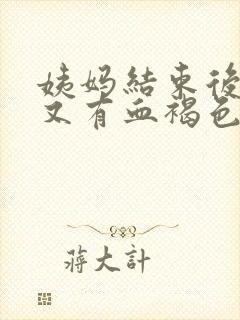 姨妈結束後
又有血褐色
蔣大計